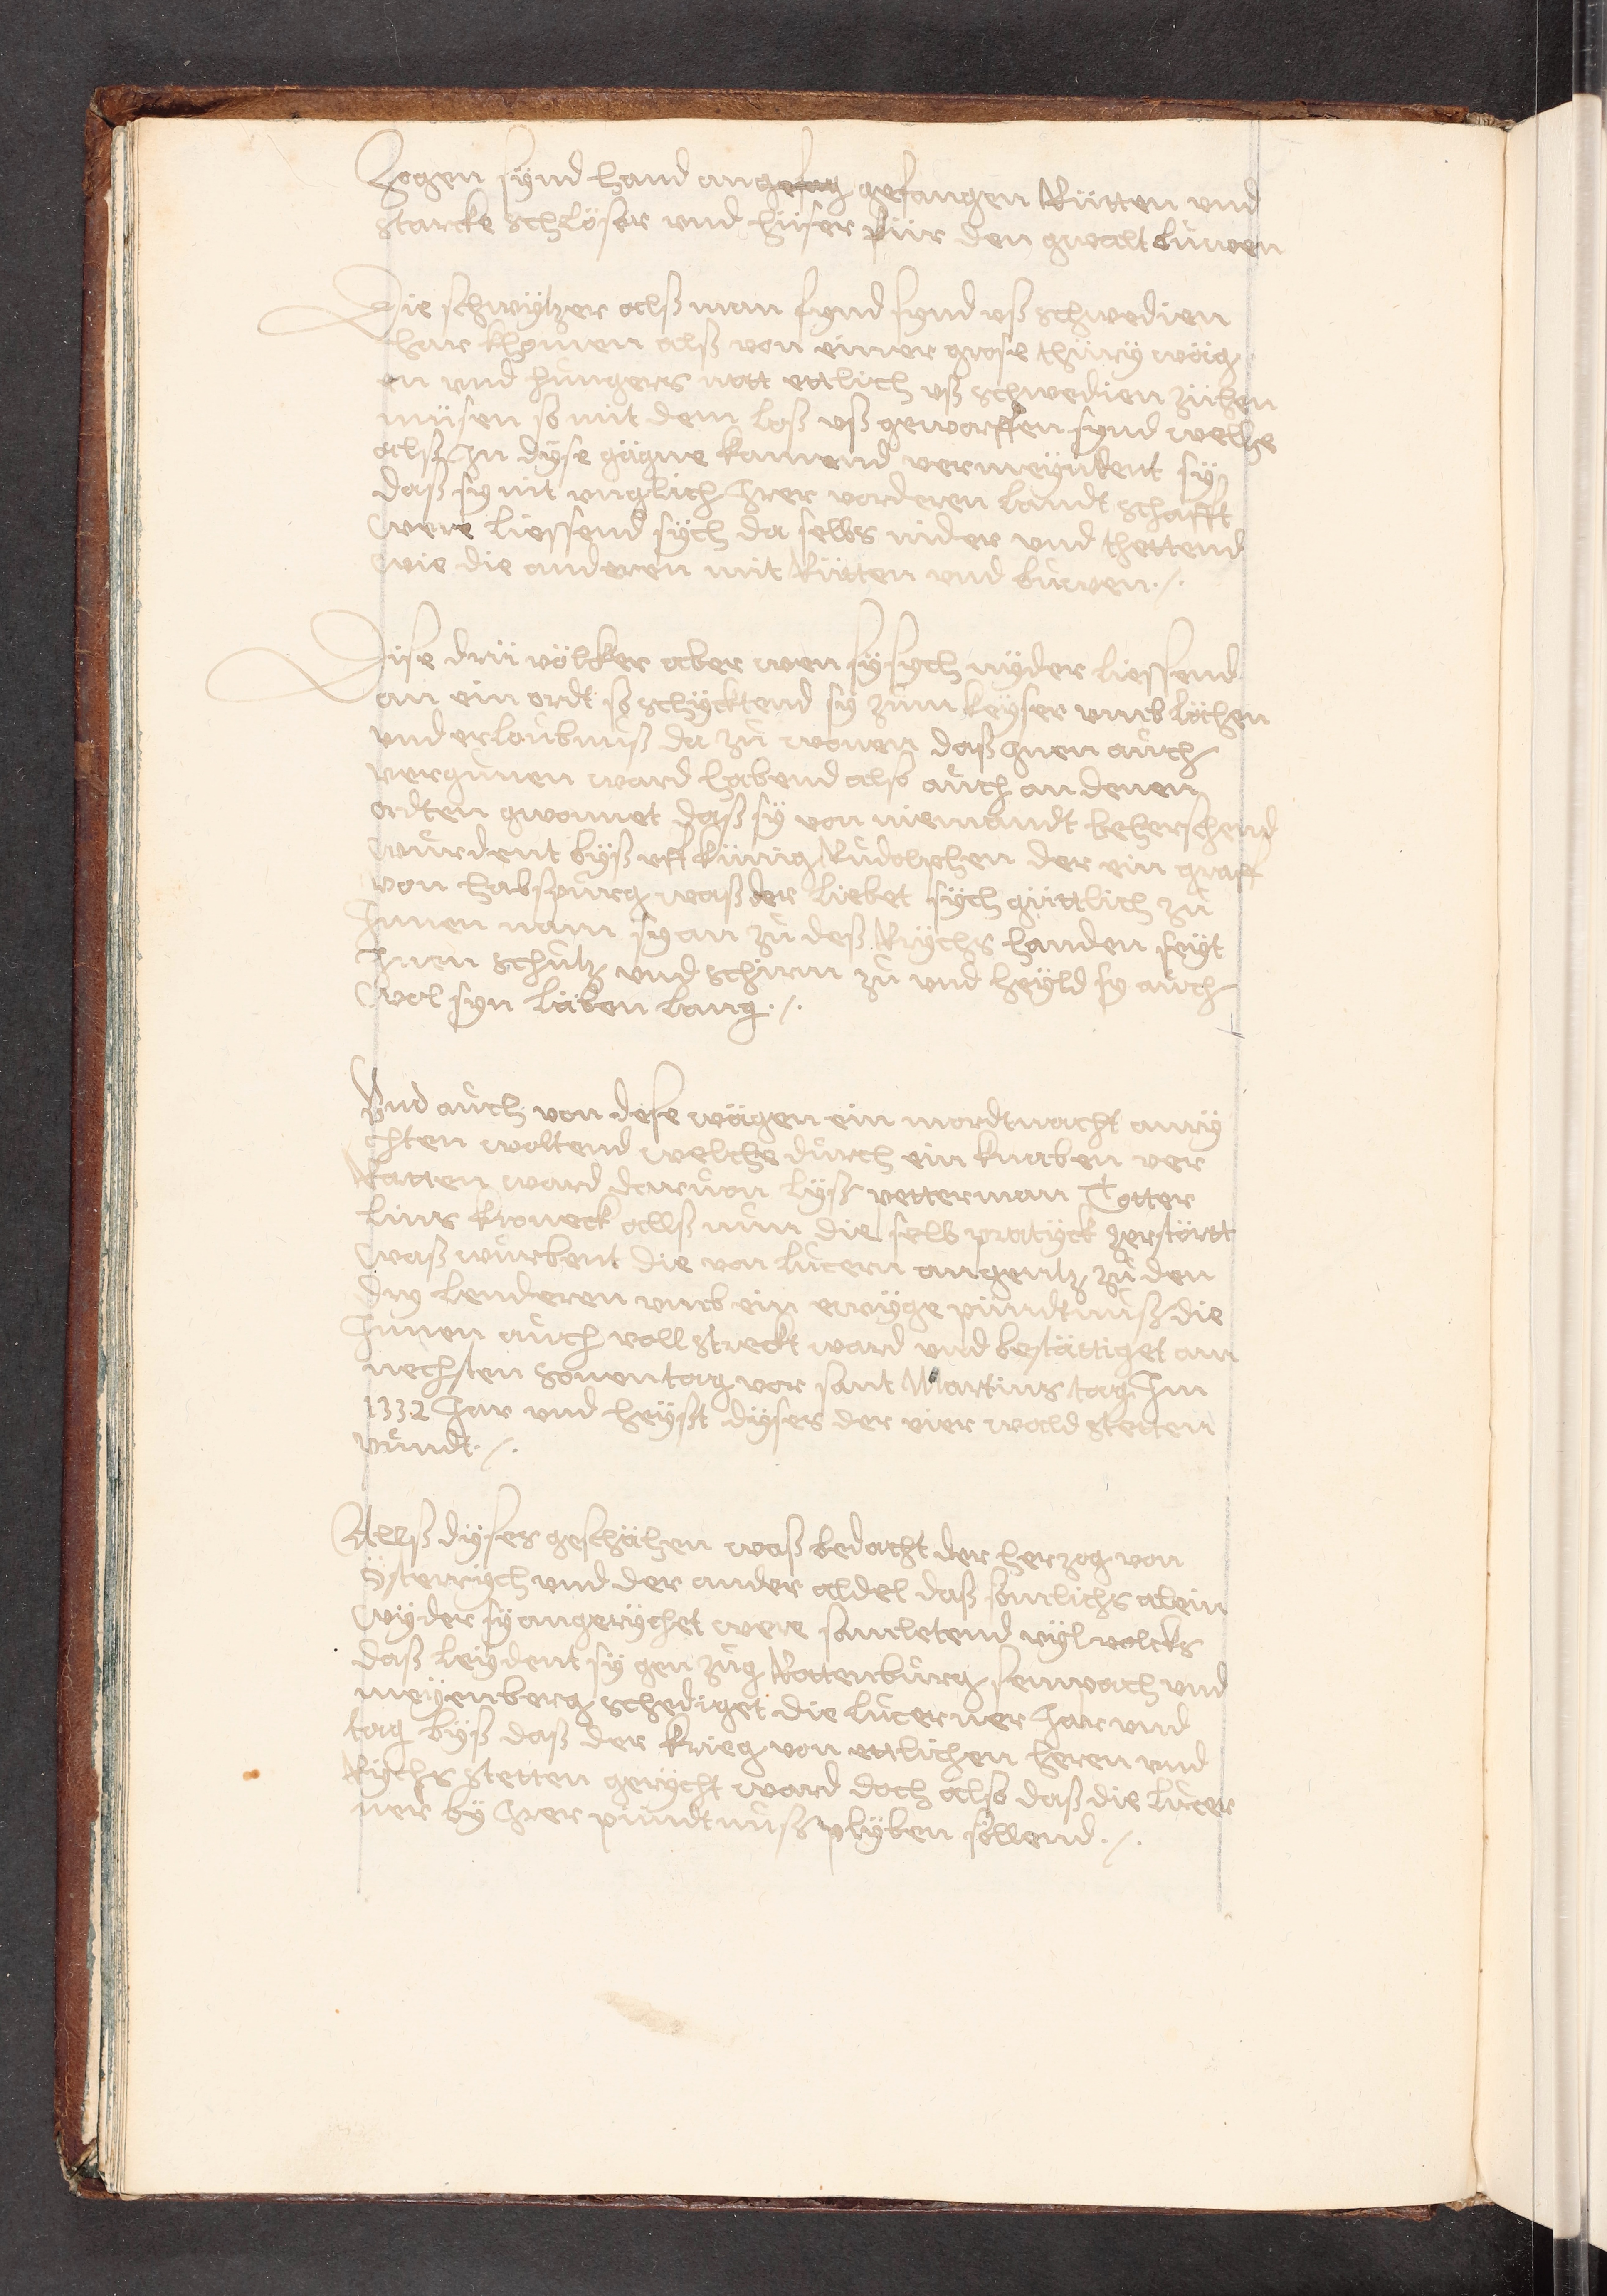 Zogen synd hand angefag gefangen Rütten vnd
starcke schlöser vnd hüser für den gwalt buwen
Die schwytzer alß man fynd synd vß schwedien
har khomen alß von einer grose thüry wäg
en vnd hungers nott ettlich vß schwedien zühen
müsen so mit dem loß vß geworffen synd welhe
alß jn dyse gägne kamend vermeyntent sy
daß sy nit vnglich jrer vorderen landt schafft
were liessend sych da selbs nider vnd thettend
wie die anderen mit Rütten vnd buwen ./.
Dise drü völcker aber wen sy sych nyder liessend
an ein ordt so schycktend sy zum keyser vmb lächen
vnd erloubnuß da zu wonen daß jnen auch
vergunen ward habend also auch an denen
ordten gwonnet daß sy von niemandt beherschend
wurdent byß vff künig Rudolphen der ein graff
von habspurg waß der liebet sych güttlich zu
Jnnen nam sy an zu deß Rychs handen seyt
Jnen schutz vnd schirm zu vnd heyld sy auch
wol syn läben lang ./.
Vnd auch von dese wägen ein mordtnacht anry
chten woltend welche durch ein knaben ver
Ratten ward daruon lyß petterman Etter
lins kroneck allß nun die selb pratyck zerstörtt
waß wurbent die von lucern angentz zu den
dry lenderen vmb ein ewyge pündtnuß die
Jnnen auch voll streckt ward vnd bestättiget am
nechsten sonentag vor sant Martins tag Jm
1332 Jar vnd heyßt dyser der vier wald stetten
pundt ./.
Allß dyses geschähen waß bedacht der herzog von
österrych vnd der ander aldel daß somlichs alein
wyder sy angerychet were samletend vyl volcks
daß leydent sy gen zug Rottenburg sempach vnd
meyenberg schediget die lucerner Jar vnd
tag byß daß der krieg von ettlichen heren vnd
Rychs stetten gerycht ward doch also daß die lucer
ner by jrer pündtnuß plyben söllend ./.